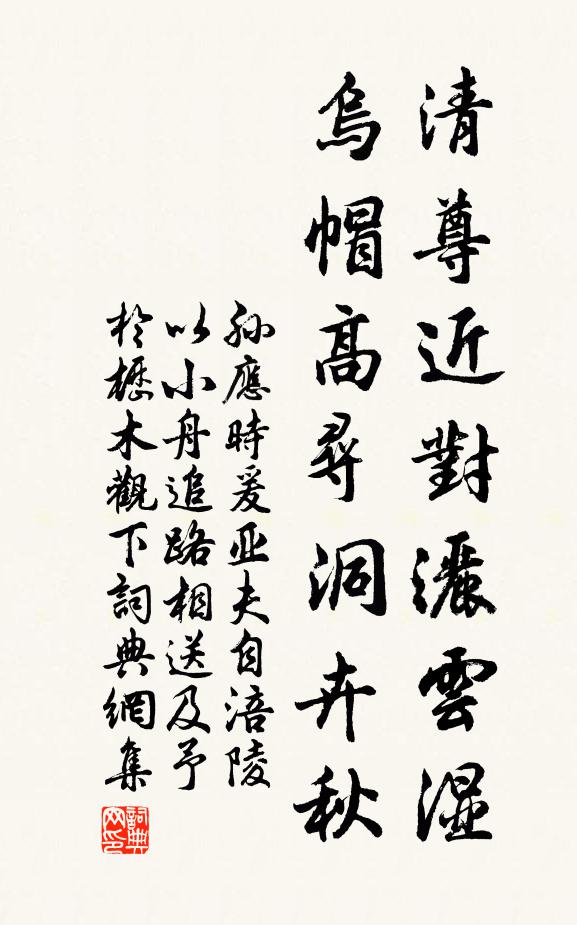 清尊近對灑雲湿
烏帽高尋洞卉秋
孫應時爰亚夫自涪陵
以小舟追路相送及予
於櫪木觀下詞典網集
詞典网印